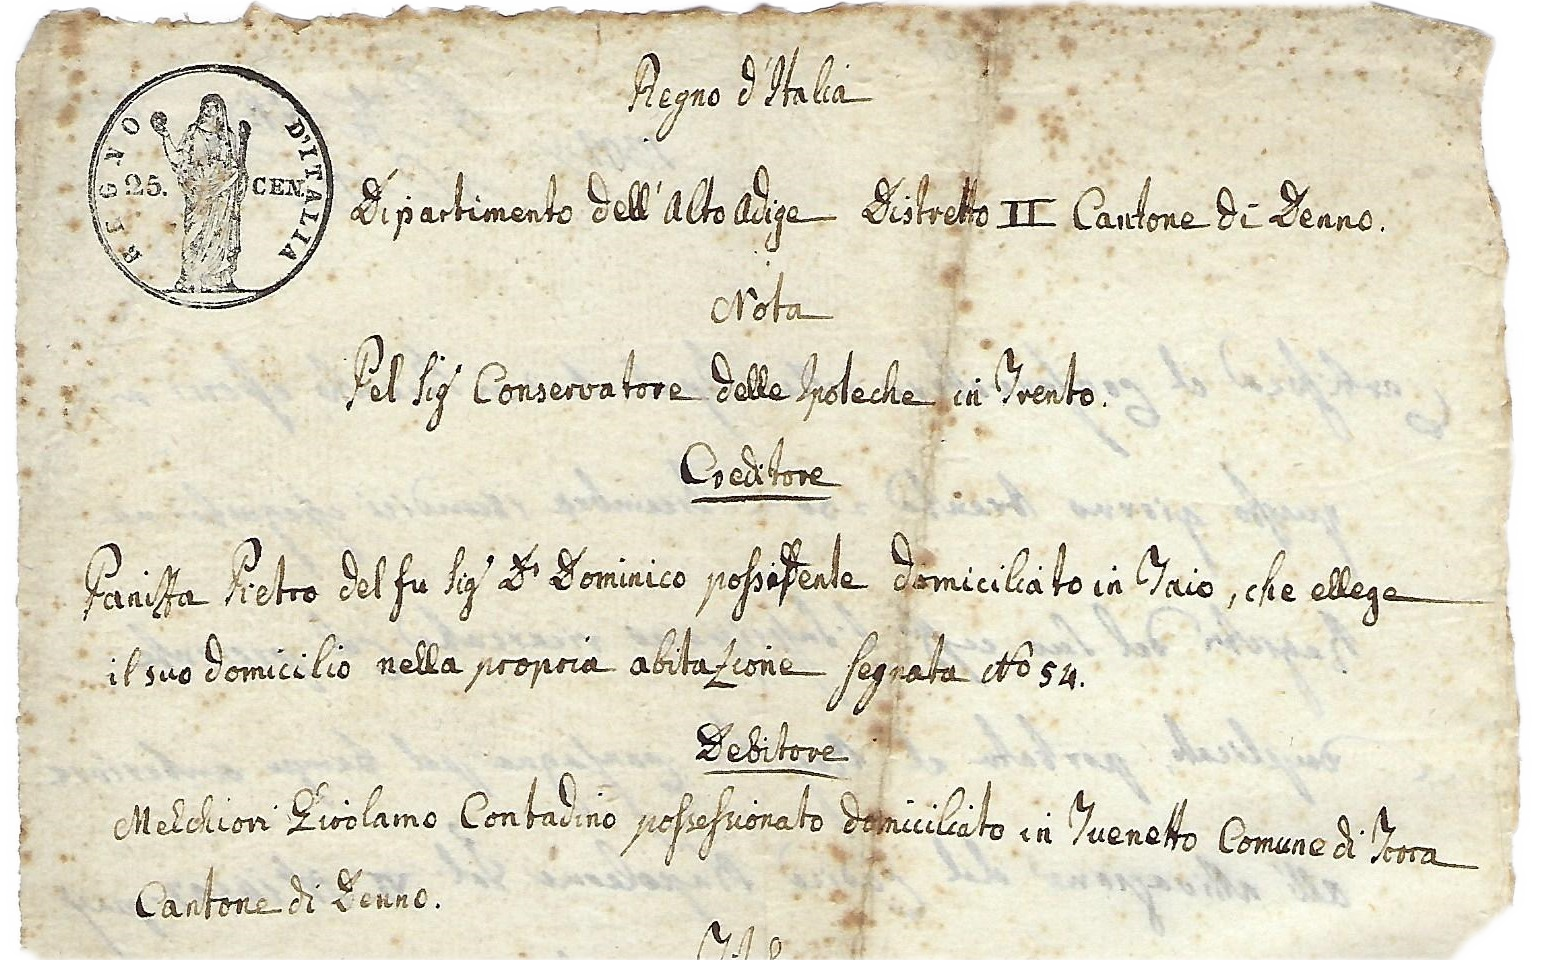 REGNO D'ITALIA
25. CEN.
Regno d'Italia
Dipartimento dell'Alto Adige Distretto II Cantone di Denno.
Nota
Pel Sig.r Conservatore delle Ipoteche in Trento.
Creditore
Panissa Pietro del fu Sig.r D.r Dominico possidente domiciliato in Taio, che ellege
il suo domicilio nella propria abitazione segnata No 54.
Debitore
Melchiori Girolamo Contadino possessionato domiciliato in Tuenetto Comune di Torra
Cantone di Denno.